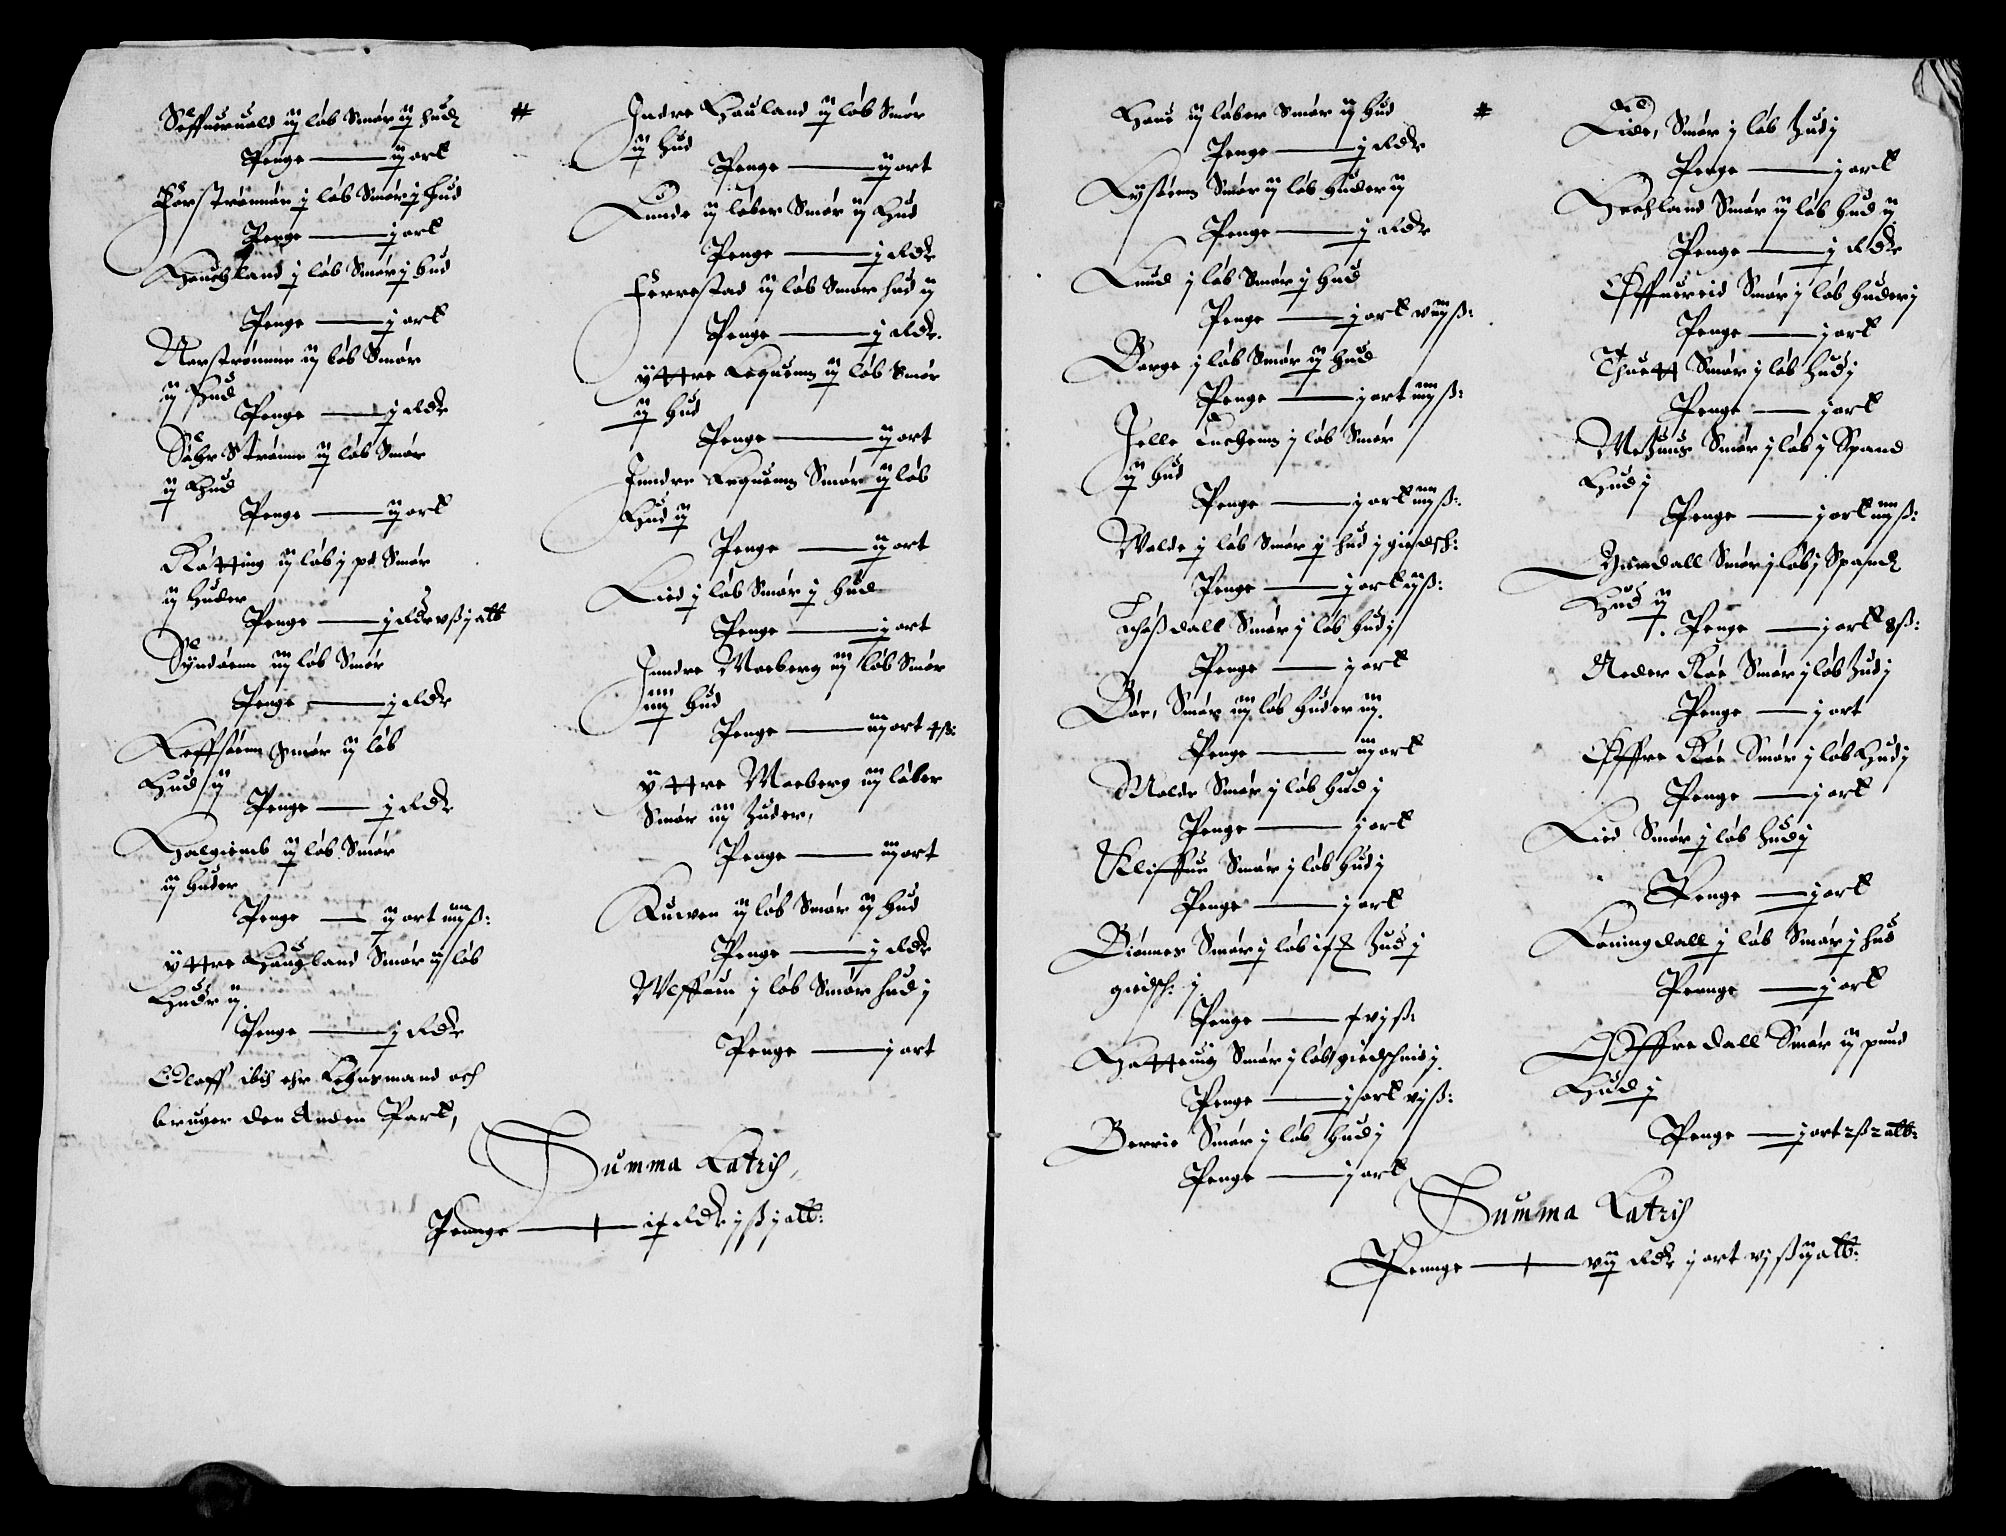 Seffueruald ij løb Smør ij hud
Penge — ij ort
Førstrønnen j løb Smør j hud
Penge — j ort
Hauchland j løb Smør j hud
Penge — j ort
Nerstrømme ij løb Smør
ij Hud
Penge — j Rdr
Søhr Strømme ij løb Smør
ij Hud
Penge — ij ort
Røtting ij løb j pd Smør
ij Huder
Penge — j Rdr vß j alb
Syndøenn iij løb Smør
Penge — j Rdr
Leffsøenn Smør ij løb
Hud ij
Penge — j Rdr
Halgiemb ij løb Smør
ij Huder
Penge — ij ort iiijß:
ÿttre Haugland Smør ij løb
Hudr ij
Penge — j Rdr
Oloff ibid ehr Lehnsmand och
bruger den Anden Part,
#
Indre Hauland ij løb Smør
ij Hud
Penge — ij ort
Lunde ij løber Smør ij Hud
Penge — j Rdr
Ferrestad ij løb Smør hud ij
Penge — j Rdr.
ÿttre Lequenn ij løb Smør
ij Hud
Penge — ij ort
Jnndre Lequenn Smør ij løb
Hud ij
Penge — ij ort
Lied j løb Smør j Hud
Penge — j ort
Jnndre Moeberg iij løb Smør
iiij Hud
Penge — iij ort 4ß:
ÿttre Moeberg iij løber
Smør iij Huder,
Penge — iij ort
Kuven ij løb Smør ij Hud
Penge — j Rdr
Weffaun j løb Smør hud j
Penge — j ort
Summa Latris,
Pennge — 17 Rdr j ß j alb:
Houe ij løber Smør ij Hud
Penge — j Rdr
Lysenn Smør ij løb Huder ij
Penge — j Rdr
Lund j løb Smør j Hud
Penge — j ort viijß:
Borge j løb Smør ij Hud
Penge — j ort iiijß:
Jelle Tuchenn j løb Smør
ij Hud
Penge — j ort iiijß:
Walde j løb Smør j Hud j giedsch:
Penge — j ort ijß:
dall Smør j løb Hud j
Penge — j ort
Bør, Smør iij løb Huder iij.
Penge — iij ort
Molde Smør j løb Hud j
Penge — j ort
Kliffun Smør j løb Hud j
Penge — j ort
Biønnes Smør j løb Hud j
giedsch: j
Penge — ß:
Hatteuig Smør j løb giedschind j.
Penge — j ort vjß:
Berrie Smør j løb Hud j
Penge — j ort
#
Eide, Smør j løb Hud j
Penge — j ort
Hechland Smør ij løb Hud ij
Penge — j Rdr
Øffuereid Smør j løb Huder j
Penge — j ort
Thuett Smør j løb Hud j
Penge — j ort
Smør j løb j Spand
Hud j
Penge — j ort iiijß:
dall Smør j løb j Spand
Hud ij
Penge — j ort 8ß:
Neder Røe Smør j løb Hud j
Penge — j ort
Øffre Røe Smør j løb Hud j
Penge — j ort
Lied Smør j løb Hud j
Penge — j ort
Køningdall j løb Smør j hud
Pennge — j ort
Øffre dall Smør ij pund
Hud j
Penge — j ort 2ß 2 alb:
Summa Latris
Pennge — vij Rdr j ort vj ß ij alb: